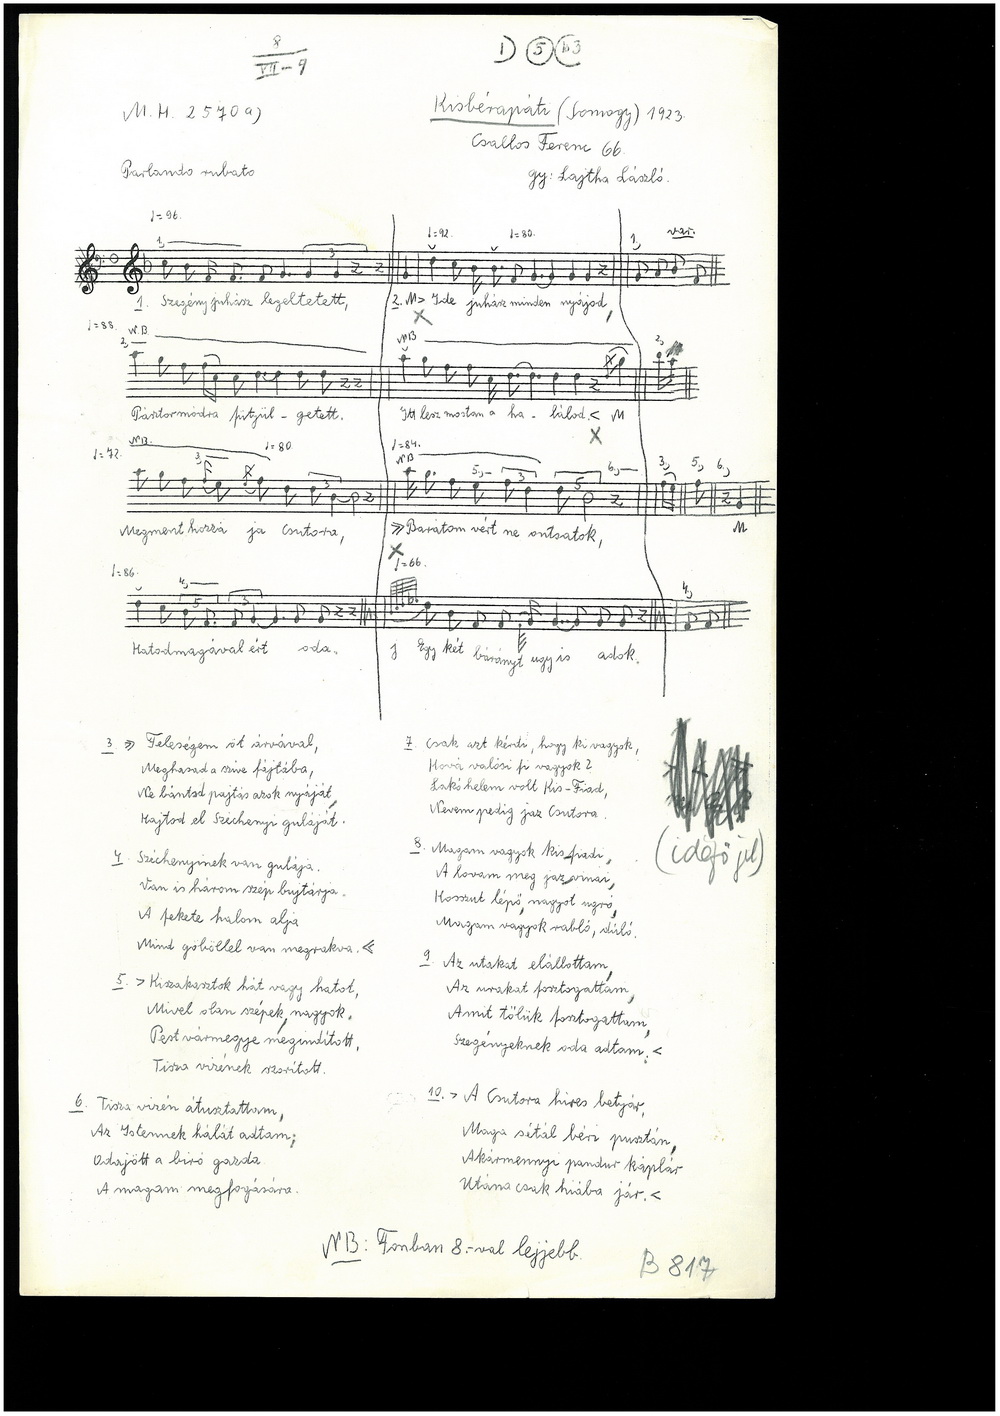 8
VII-9
1) 5 b3
M.H. 2570a)
Kisbérapáti (Somogy) 1923.
Csallos Ferenc 66.
Parlando rubato
gy: Lajtha László.
♩=96.
♩=92. ♩=80.
1) var.
1)
3
1. Szegény juhász legeltetett,
2. M> Ide juhász minden nyájod,
♩=88. NB
2)
NB
2)
Pásztormódra fütyül-getett.
Itt lesz mostan a ha-lálod< M
♩=72. NB. 3) ♩=80
♩=84. NB 5) 3 5 6)
3) 5) 6)
Megment hozzá ja Csutora,
»Barátom vért ne ontsatok,
M
♩=86. 4) 5 3
♩=66.
4)
Hatodmagával ért oda.
j Egy két bárányt ugy is adok.
3 » Feleségem öt árvával,
Meghasad a szive fájtába,
Ne bántsd pajtás azok nyáját,
Hajtsd el Széchenyi guláját.
4. Széchenyinek van gulája.
Van is három szép bujtárja.
A fekete halom alja
Mind göböllel van megrakva.«
5. > Kiszakasztok hát vagy hatot,
Mivel olan szépek, nagyok.
Pest vármegye megindított,
Tisza vizének szorított.
6. Tisza vizén átusztattam,
Az Istennek hálát adtam;
Odajött a biró gazda
A magam megfogására.
7. Csak azt kérdi, hogy ki vagyok,
Hová valósi fi vagyok?
Lakó helem volt Kis-Fiad,
Nevem pedig jaz Csutora.
8. Magam vagyok kis fiadi,
A lovam meg jaz
Hosszut lépő, nagyot ugró,
Magam vagyok rabló, dúló.
9. Az utakat elállottam,
Az urakat fosztogattam,
Amit tőlük fosztogattam,
Szegényeknek oda adtam.<
10. > A Csutora hires betyár,
Maga sétál béri pusztán,
Akármennyi pandur káplár
Utána csak hiába jár.<
(idéző jel)
NB: Fonban 8.-val lejjebb.
B 817